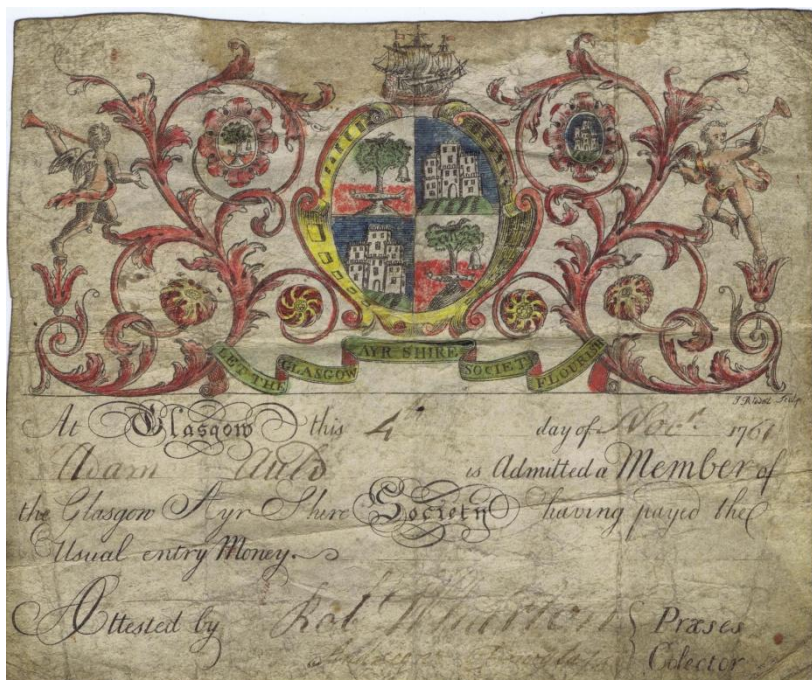 LET THE GLASGOW AYR SHIRE SOCIETY FLOURISH
Sculp
At Glasgow this 4th day of Novr. 1761
Adam Auld is Admitted a Member of
the Glasgow Ayr Shire Society having payed the
Usual entry Money.
Attested by Robt Wharton Præses
Colector